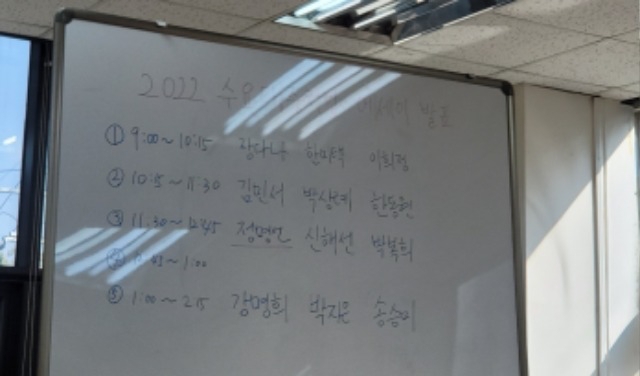 2022 수요 에세이 발표
① 9:00~10:15 장다나 한미택 이희정
② 10:15~11:30 김민서 박상례 한동원
③ 11:30~12:45 정명언 신해선 박복희
④ 12:45~1:00
⑤ 1:00~2:15 강명희 박지은 송승미